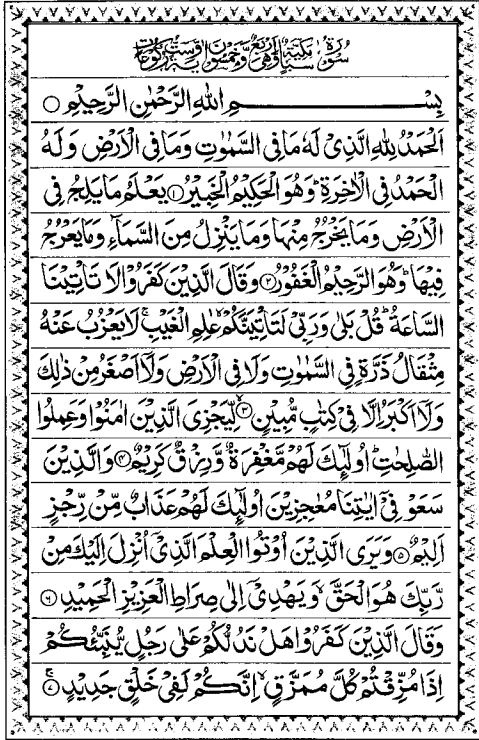 سُوْرَةُ سَبَاٍ مَّكِّیَّةٌ وَّهِیَ اَرْبَعٌ وَّخَمْسُوْنَ اٰیَةً وَّسِتُّ رُكُوْعَاتٍ
بِسْمِ اللهِ الرَّحْمٰنِ الرَّحِیْمِ ○
اَلْحَمْدُ لِلّٰهِ الَّذِیْ لَهٗ مَا فِی السَّمٰوٰتِ وَمَا فِی الْاَرْضِ وَلَهُ
الْحَمْدُ فِی الْاٰخِرَةِ ؕ وَهُوَ الْحَكِیْمُ الْخَبِیْرُ ۝۱ یَعْلَمُ مَا یَلِجُ فِی
الْاَرْضِ وَمَا یَخْرُجُ مِنْهَا وَمَا یَنْزِلُ مِنَ السَّمَآءِ وَمَا یَعْرُجُ
فِیْهَا ؕ وَهُوَ الرَّحِیْمُ الْغَفُوْرُ ۝۲ وَقَالَ الَّذِیْنَ كَفَرُوْا لَا تَاْتِیْنَا
السَّاعَةُ ؕ قُلْ بَلٰی وَرَبِّیْ لَتَاْتِیَنَّكُمْ ۙ عٰلِمِ الْغَیْبِ ۚ لَا یَعْزُبُ عَنْهُ
مِثْقَالُ ذَرَّةٍ فِی السَّمٰوٰتِ وَلَا فِی الْاَرْضِ وَلَاۤ اَصْغَرُ مِنْ ذٰلِكَ
وَلَاۤ اَكْبَرُ اِلَّا فِیْ كِتٰبٍ مُّبِیْنٍ ۝۳ لِّیَجْزِیَ الَّذِیْنَ اٰمَنُوْا وَعَمِلُوا
الصّٰلِحٰتِ ؕ اُولٰٓئِكَ لَهُمْ مَّغْفِرَةٌ وَّرِزْقٌ كَرِیْمٌ ۝۴ وَالَّذِیْنَ
سَعَوْ فِیْۤ اٰیٰتِنَا مُعٰجِزِیْنَ اُولٰٓئِكَ لَهُمْ عَذَابٌ مِّنْ رِّجْزٍ
اَلِیْمٌ ۝۵ وَیَرَی الَّذِیْنَ اُوْتُوا الْعِلْمَ الَّذِیْۤ اُنْزِلَ اِلَیْكَ مِنْ
رَّبِّكَ هُوَ الْحَقَّ ۙ وَیَهْدِیْۤ اِلٰی صِرَاطِ الْعَزِیْزِ الْحَمِیْدِ ۝۶
وَقَالَ الَّذِیْنَ كَفَرُوْا هَلْ نَدُلُّكُمْ عَلٰی رَجُلٍ یُّنَبِّئُكُمْ
اِذَا مُزِّقْتُمْ كُلَّ مُمَزَّقٍ ۙ اِنَّكُمْ لَفِیْ خَلْقٍ جَدِیْدٍ ۝۷ۚ